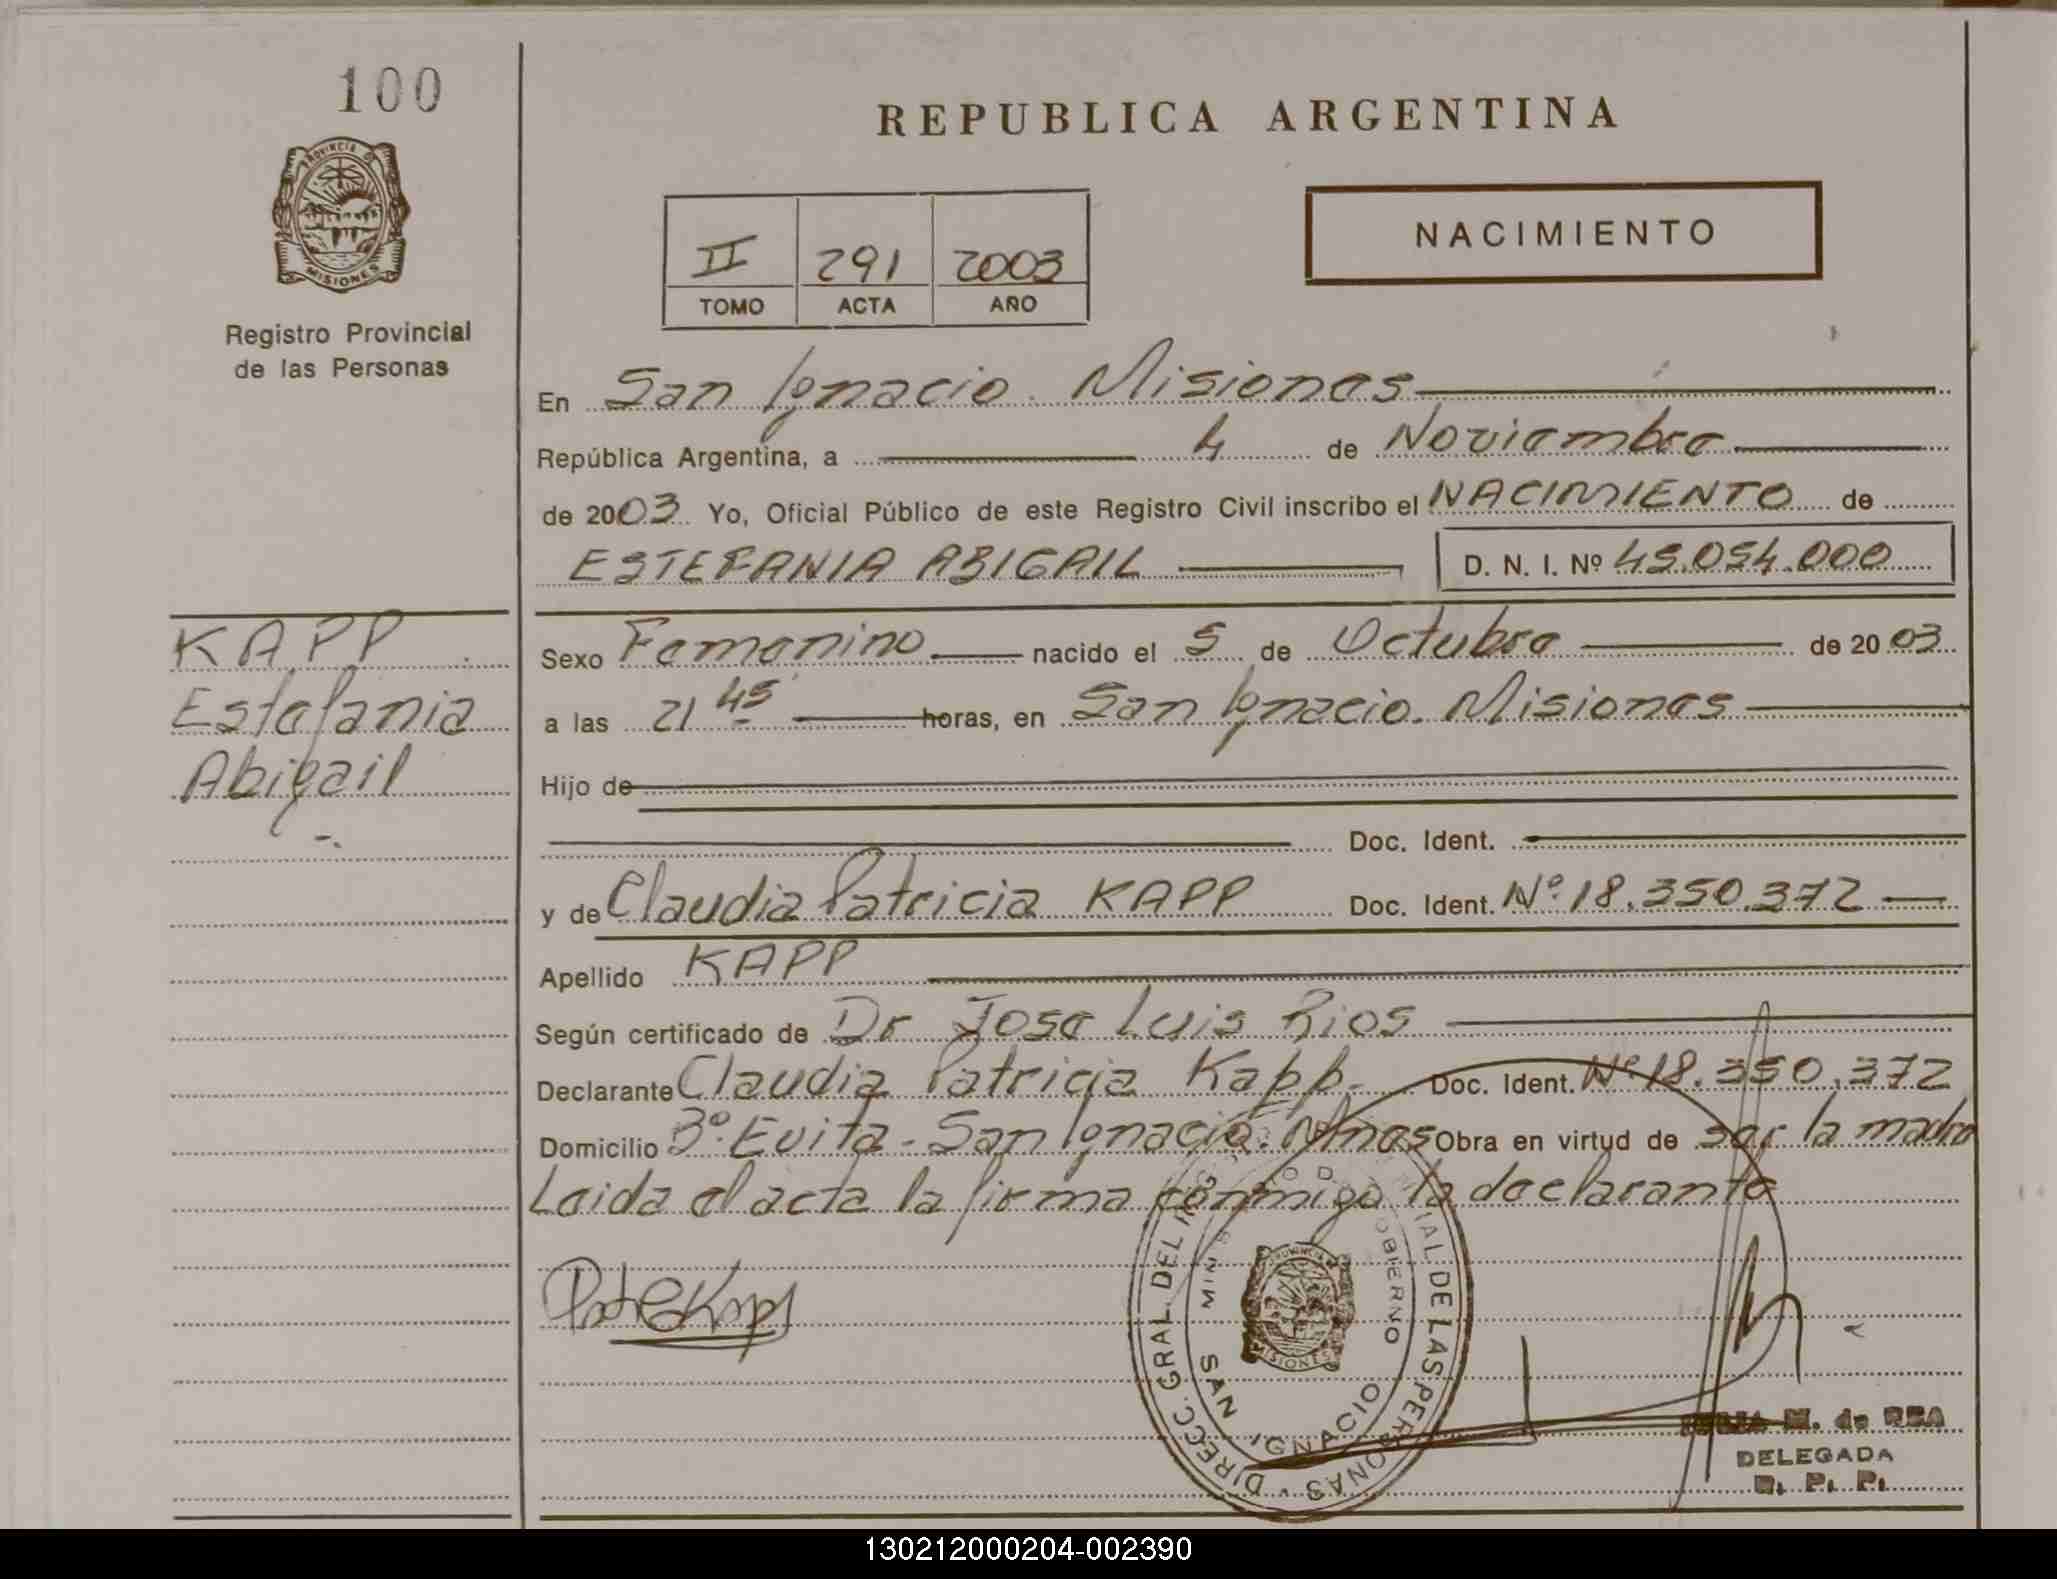 100
PROVINCIA DE
MISIONES
Registro Provincial
de las Personas
REPUBLICA ARGENTINA
II 291 2003
TOMO ACTA AÑO
NACIMIENTO
En San Ignacio. Misiones
República Argentina, a 4 de Noviembre
de 2003 Yo, Oficial Público de este Registro Civil inscribo el NACIMIENTO de
ESTEFANIA ABIGAIL D. N. I. Nº 45.054.000
KAPP
Estefania
Abigail
Sexo Femenino nacido el 5 de Octubre de 2003
a las 21 45 horas, en San Ignacio. Misiones
Hijo de
Doc. Ident.
y de Claudia Patricia KAPP Doc. Ident. Nº 18.350.372
Apellido KAPP
Según certificado de Dr Jose Luis Rios
Declarante Claudia Patricia Kapp. Doc. Ident. Nº 18.350.372
Domicilio Bº Evita - San Ignacio. Mnes Obra en virtud de ser la madre
Leida el acta la firma conmigo la declarante
DIRECC. GRAL. DEL DE LAS PERSONAS
MINISTERIO DE GOBIERNO
MISIONES
SAN IGNACIO
M. de REA
DELEGADA
R. P. P.
130212000204-002390